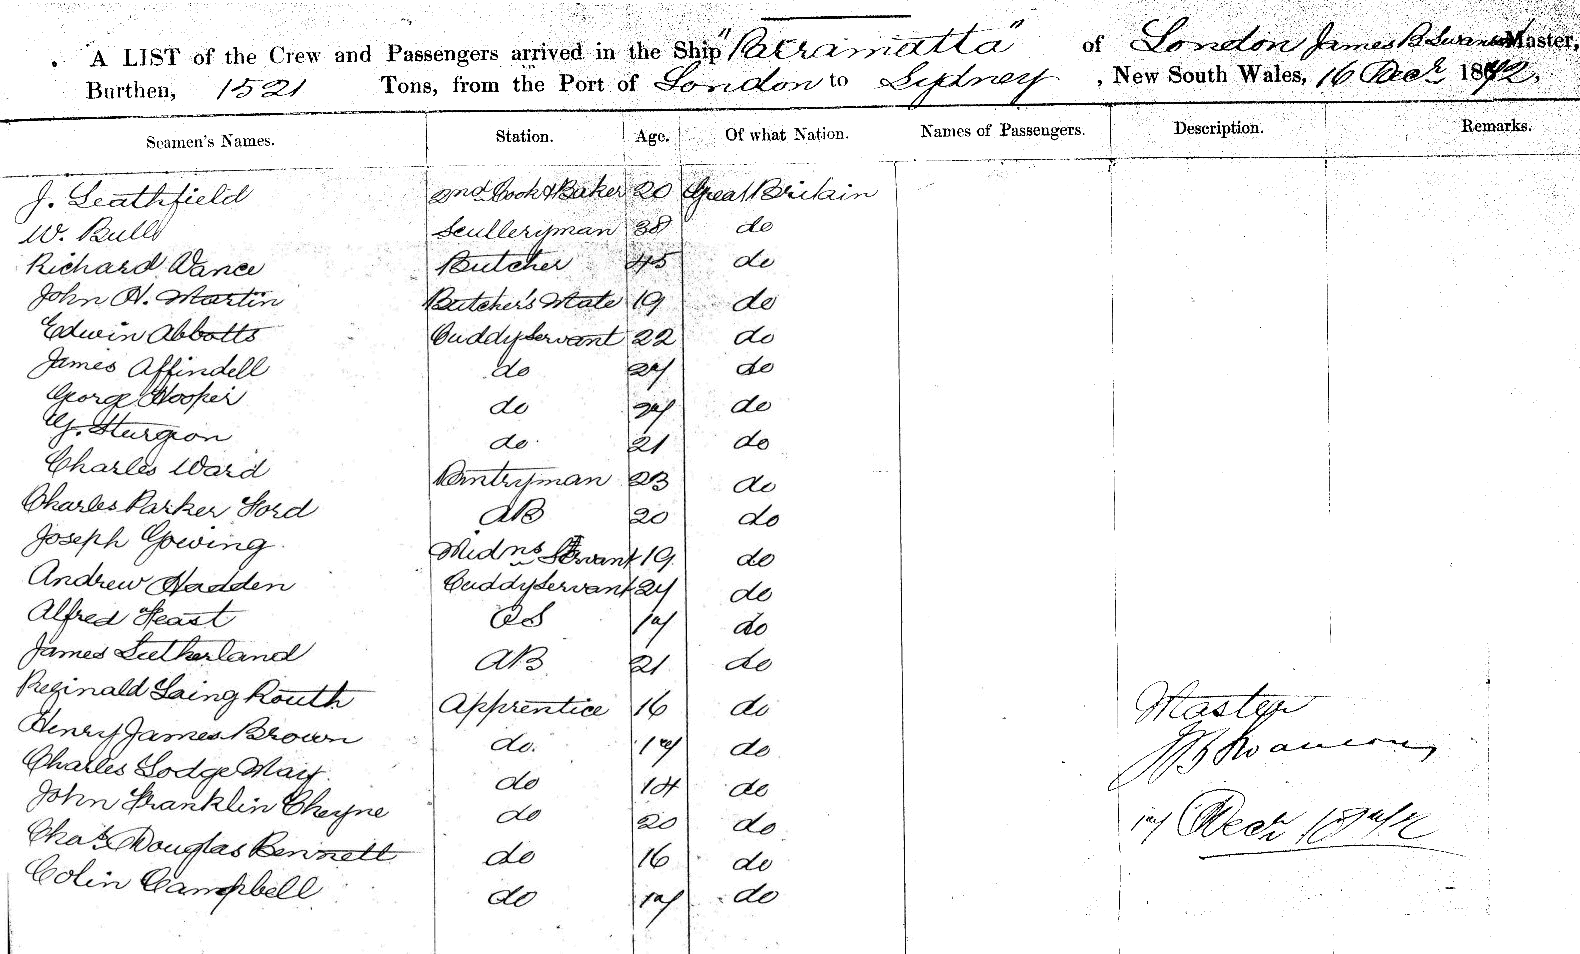 A LIST of the Crew and Passengers arrived in the Ship "Parramatta" of London James B Swanson Master,
Burthen, 1521 Tons, from the Port of London to Sydney, New South Wales, 16 Decr 1872,
Seamen's Names. Station. Age. Of what Nation. Names of Passengers. Description. Remarks.
J. Leathfield 2nd Cook & Baker 20 Great Britain
W. Bull Sculleryman 38 do
Richard Vance Butcher 45 do
John H. Martin Butcher's Mate 19 do
Edwin Abbotts Cuddy Servant 22 do
James Affindell do 27 do
George Hooper do 27 do
G. Sturgeon do 21 do
Charles Ward Pantryman 23 do
Charles Parker Ford AB 20 do
Joseph Gowing Midns Servant 19 do
Andrew Hadden Cuddy Servant 27 do
Alfred Feast OS 17 do
James Sutherland AB 21 do
Reginald Laing Routh Apprentice 16 do
Henry James Brown do. 17 do
Charles Lodge May do 14 do
John Franklin Cheyne do 20 do
Chas Douglas Bennett do 16 do
Colin Campbell do 17 do
Master
J B Swanson
17 Decr 1872